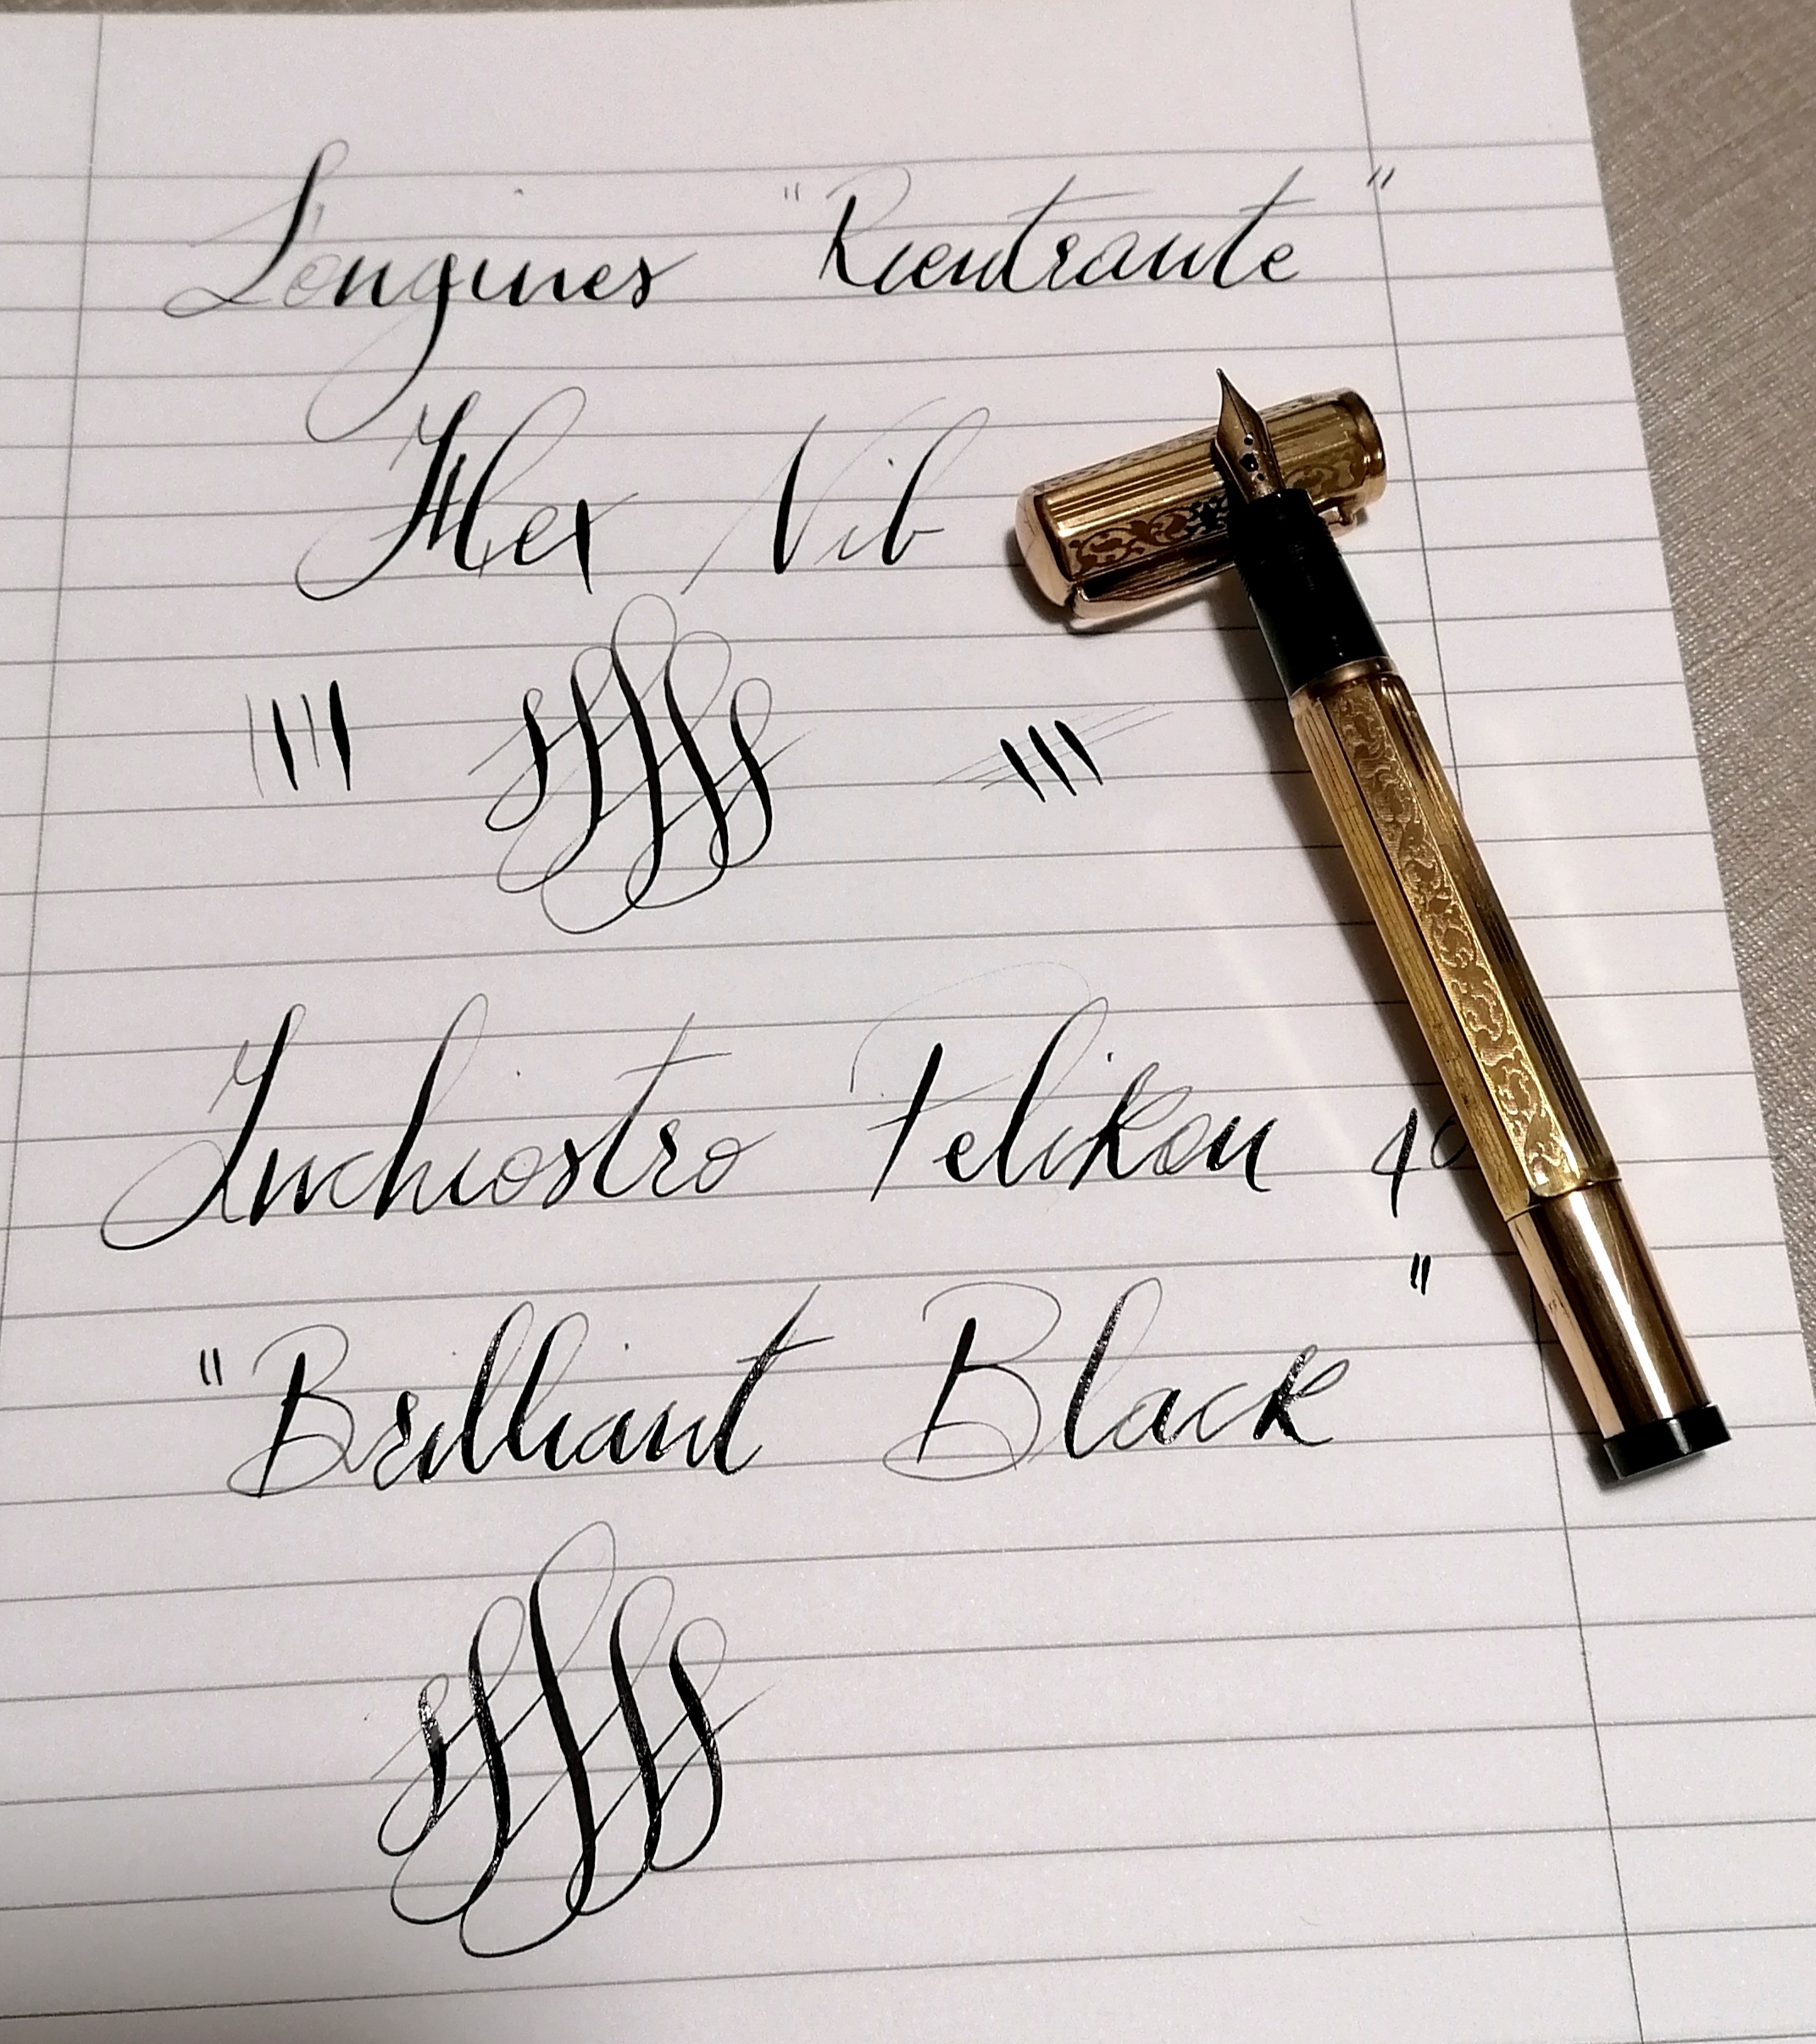 Longines "Rientrante"
Flex Nib
Inchiostro Pelikan 40
"Brilliant Black"